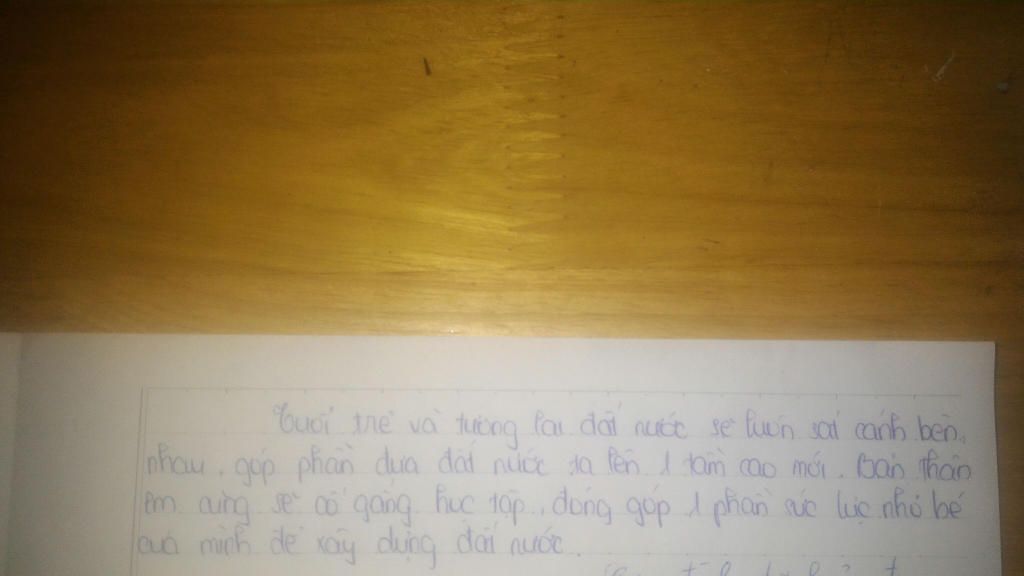 Tuổi trẻ và tương lai đất nước sẽ luôn sát cánh bên
nhau, góp phần đưa đất nước ta lên 1 tầm cao mới. Bản thân
em cũng sẽ cố gắng học tập, đóng góp 1 phần sức lực nhỏ bé
của mình để xây dựng đất nước.